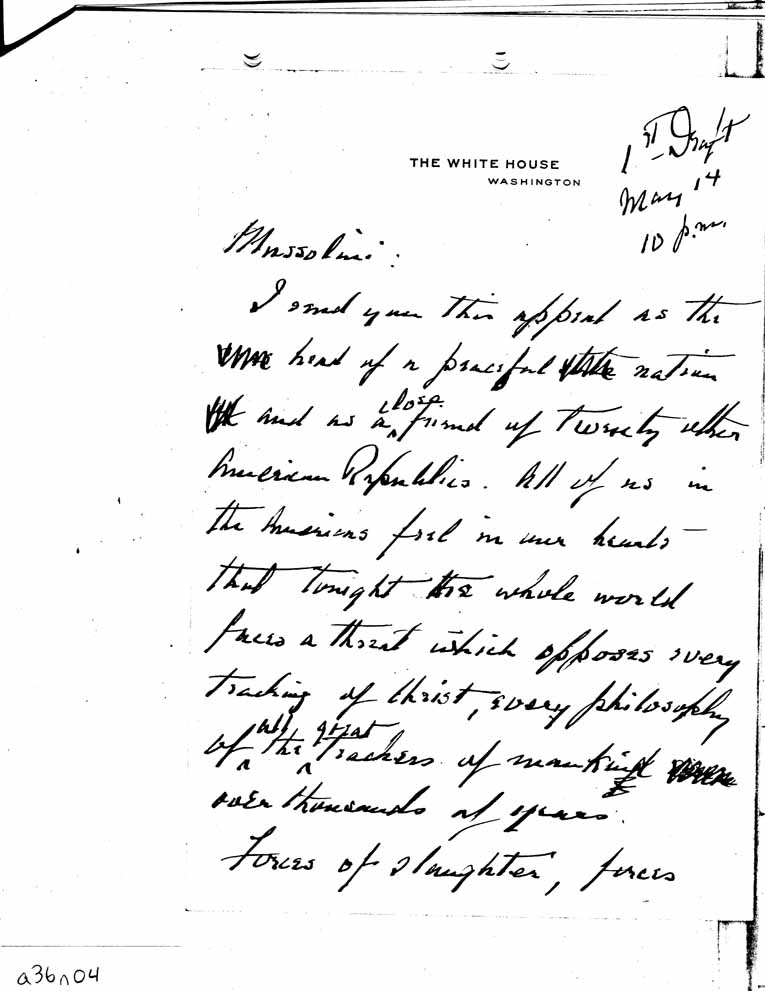 THE WHITE HOUSE
WASHINGTON
1st Draft
May 14
10 p.m.
Mussolini:
I send you this appeal as the
head of a peaceful nation
and as a close friend of twenty other
American Republics. All of us in
the Americas feel in our hearts
that tonight the whole world
faces a threat which opposes every
teaching of Christ, every philosophy
of all the great teachers of mankind
over thousands of years.
Forces of slaughter, forces
a36n04